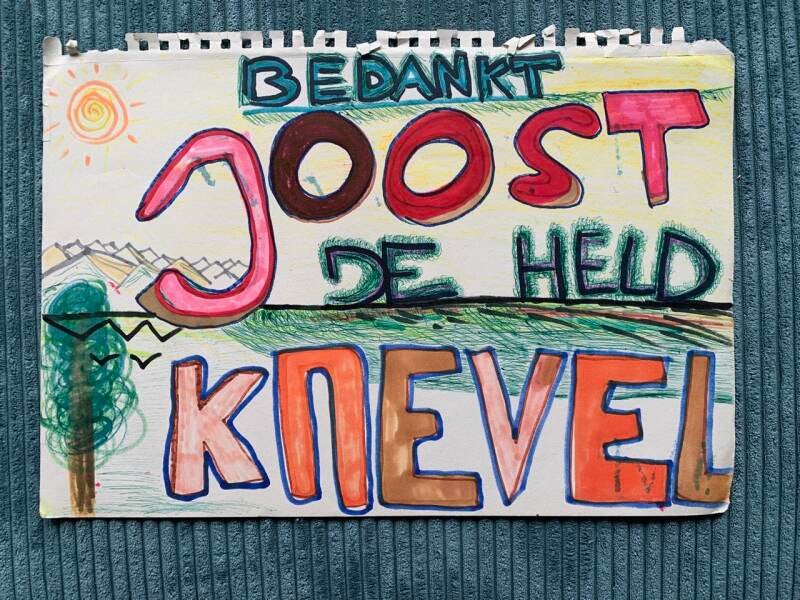 BEDANKT
JOOST
DE HELD
KNEVEL